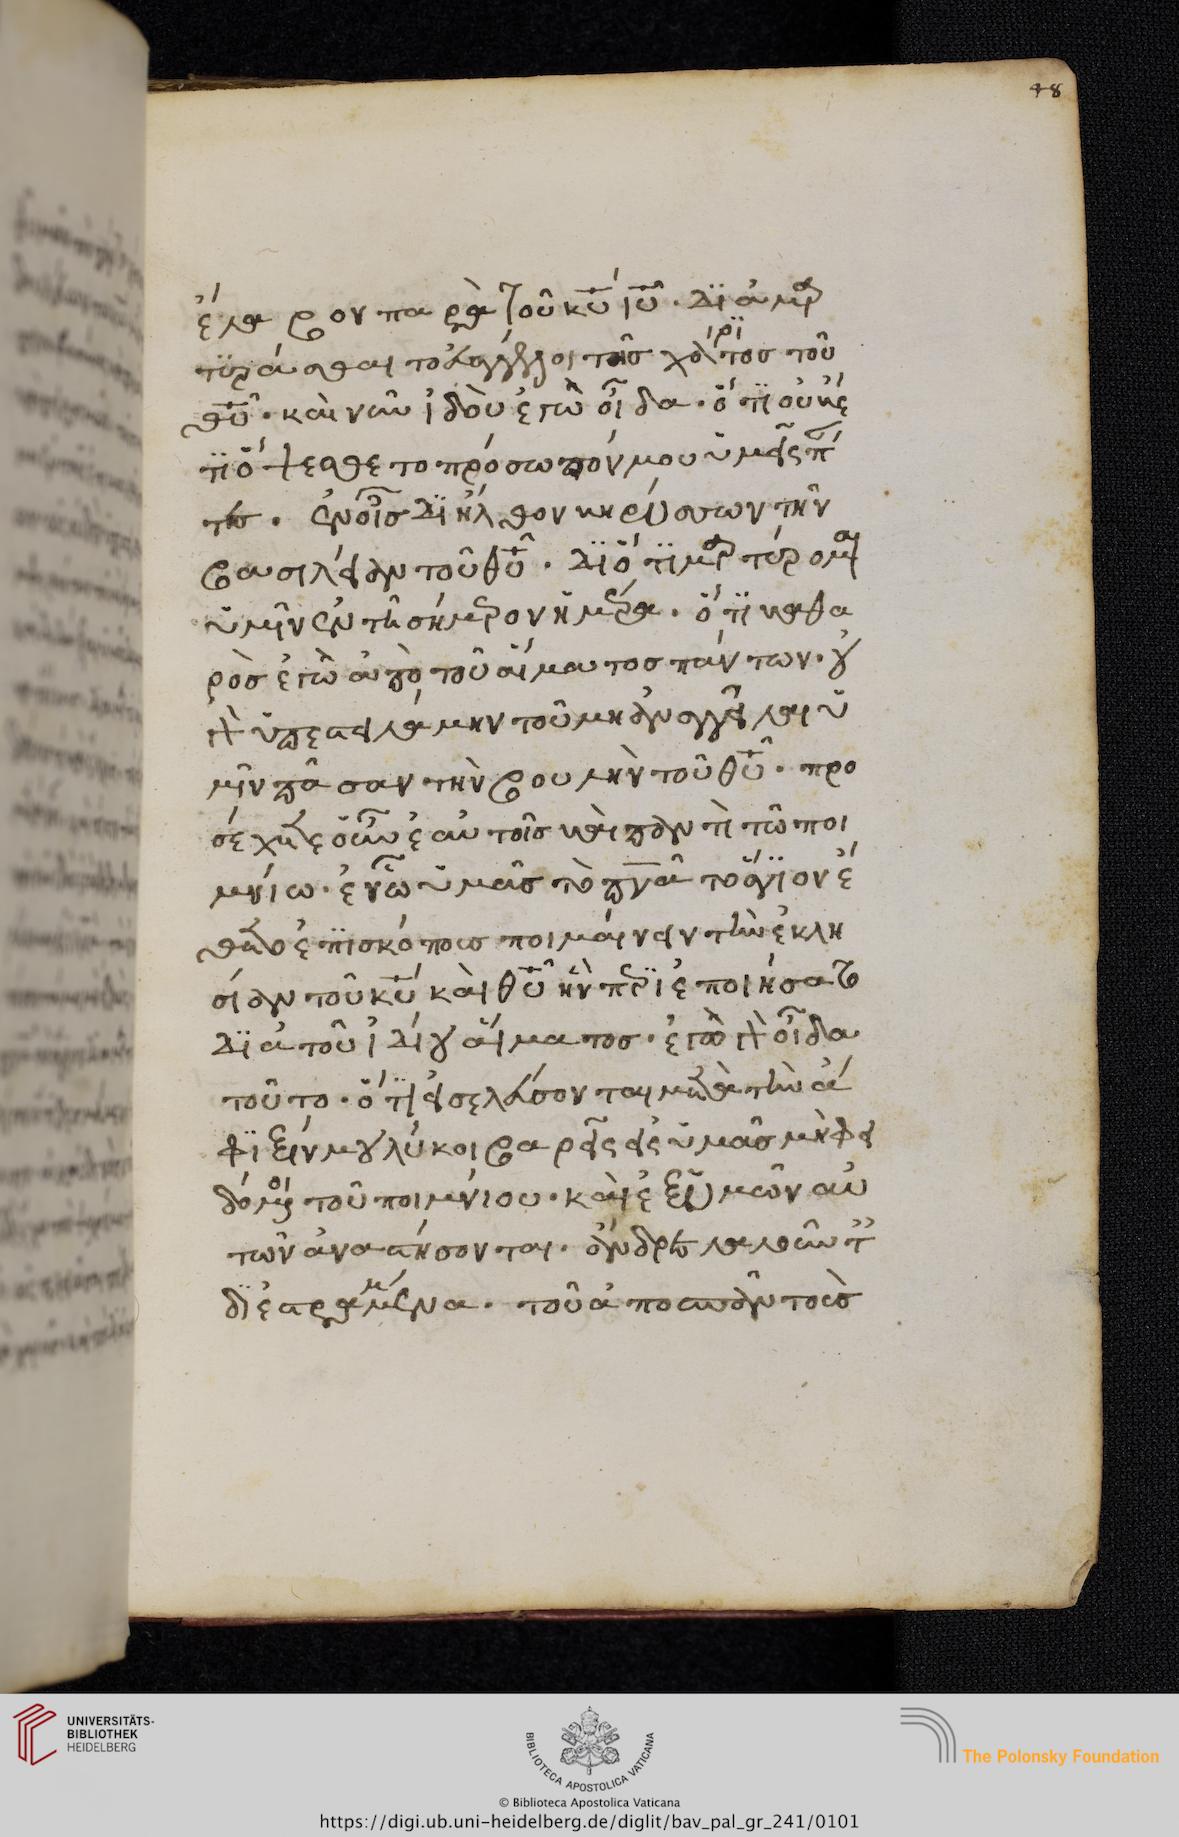 48
ἔλαβον παρὰ τοῦ κ̅υ̅ ἰ̅υ̅. διαμαρ
τύρασθαι τὸ εὐαγγέλιον τῆς χάριτος τοῦ
θ̅υ̅. καὶ νῦν ἰδοὺ ἐγὼ οἶδα. ὅτι οὐκέ
τι ὄψεσθε το πρόσωπόν μου ὑμεῖς πάν
τες. ἐν οἷς διῆλθον κηρύσσων τὴν
βασιλείαν τοῦ θ̅υ̅. διότι μαρτύρομαι
ὑμῖν ἐν τῆ σήμερον ἡμέρα. ὅτι καθα
ρὸς ἐγὼ ἀπὸ τοῦ αἵματος πάντων. οὐ
γὰρ ὑπεστειλάμην τοῦ μὴ ἀναγγεῖλαι ὑ
μῖν πᾶσαν τὴν βουλὴν τοῦ θ̅υ̅. προ
σέχετε οὖν ἑαυτοῖς καὶ παντὶ τῶ ποι
μνίω. ἐν ὧ ὑμᾶς τὸ π̅ν̅α̅ τὸ ἅγιον ἔ
θετο ἐπισκόπους ποιμαίνειν τὴν ἐκκλη
σίαν τοῦ κ̅υ̅ καὶ θ̅υ̅ ἣν περιεποιήσατο
διὰ τοῦ ἰδίου αἵματος. ἐγὼ γὰρ οἶδα
τοῦτο. ὅτι εἰσελεύσονται μετὰ τὴν ἄ
φιξίν μου λύκοι βαρεῖς εἰς ὑμᾶς μὴ φει
δόμενοι τοῦ ποιμνίου. καὶ ἐξ ὑμῶν αὐ
τῶν ἀναστήσονται. ἄνδρες λαλοῦντες
διεστραμμένα. τοῦ ἀποσπᾶν τοὺς
UNIVERSITÄTS-
BIBLIOTHEK
HEIDELBERG
BIBLIOTECA APOSTOLICA VATICANA
The Polonsky Foundation
© Biblioteca Apostolica Vaticana
https://digi.ub.uni-heidelberg.de/diglit/bav_pal_gr_241/0101